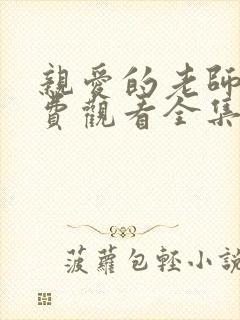 親愛的老師
費觀看全集
菠蘿包輕小說